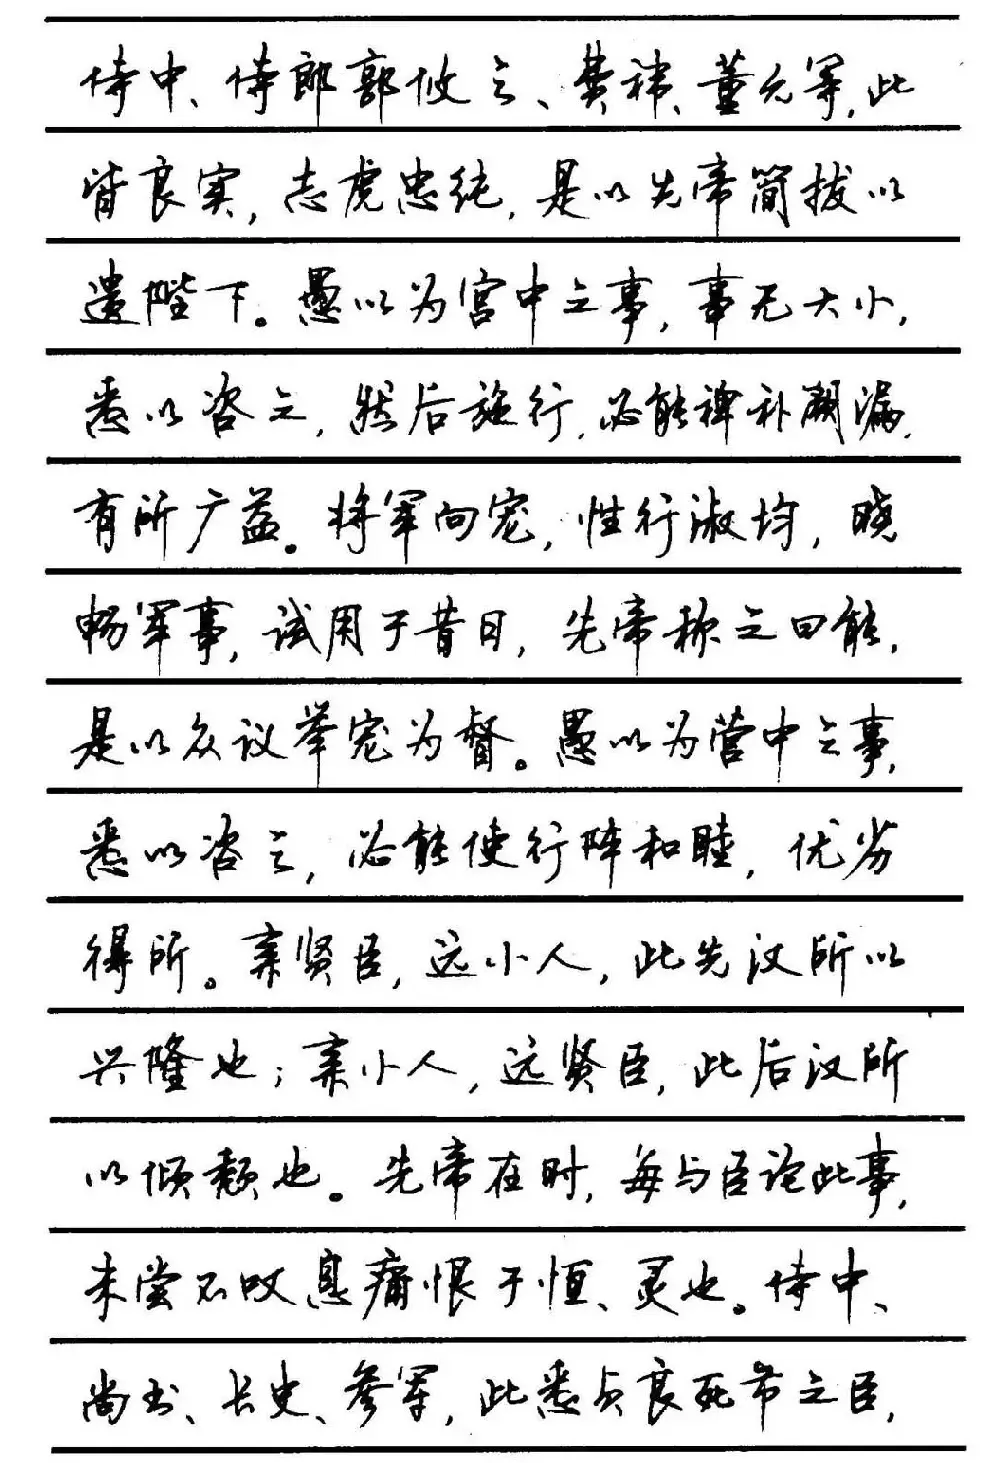 侍中、侍郎郭攸之、费祎、董允等,此
皆良实,志虑忠纯,是以先帝简拔以
遗陛下。愚以为宫中之事,事无大小,
悉以咨之,然后施行,必能裨补阙漏,
有所广益。将军向宠,性行淑均,晓
畅军事,试用于昔日,先帝称之曰能,
是以众议举宠为督。愚以为营中之事,
悉以咨之,必能使行阵和睦,优劣
得所。亲贤臣,远小人,此先汉所以
兴隆也;亲小人,远贤臣,此后汉所
以倾颓也。先帝在时,每与臣论此事,
未尝不叹息痛恨于桓、灵也。侍中、
尚书、长史、参军,此悉贞良死节之臣,